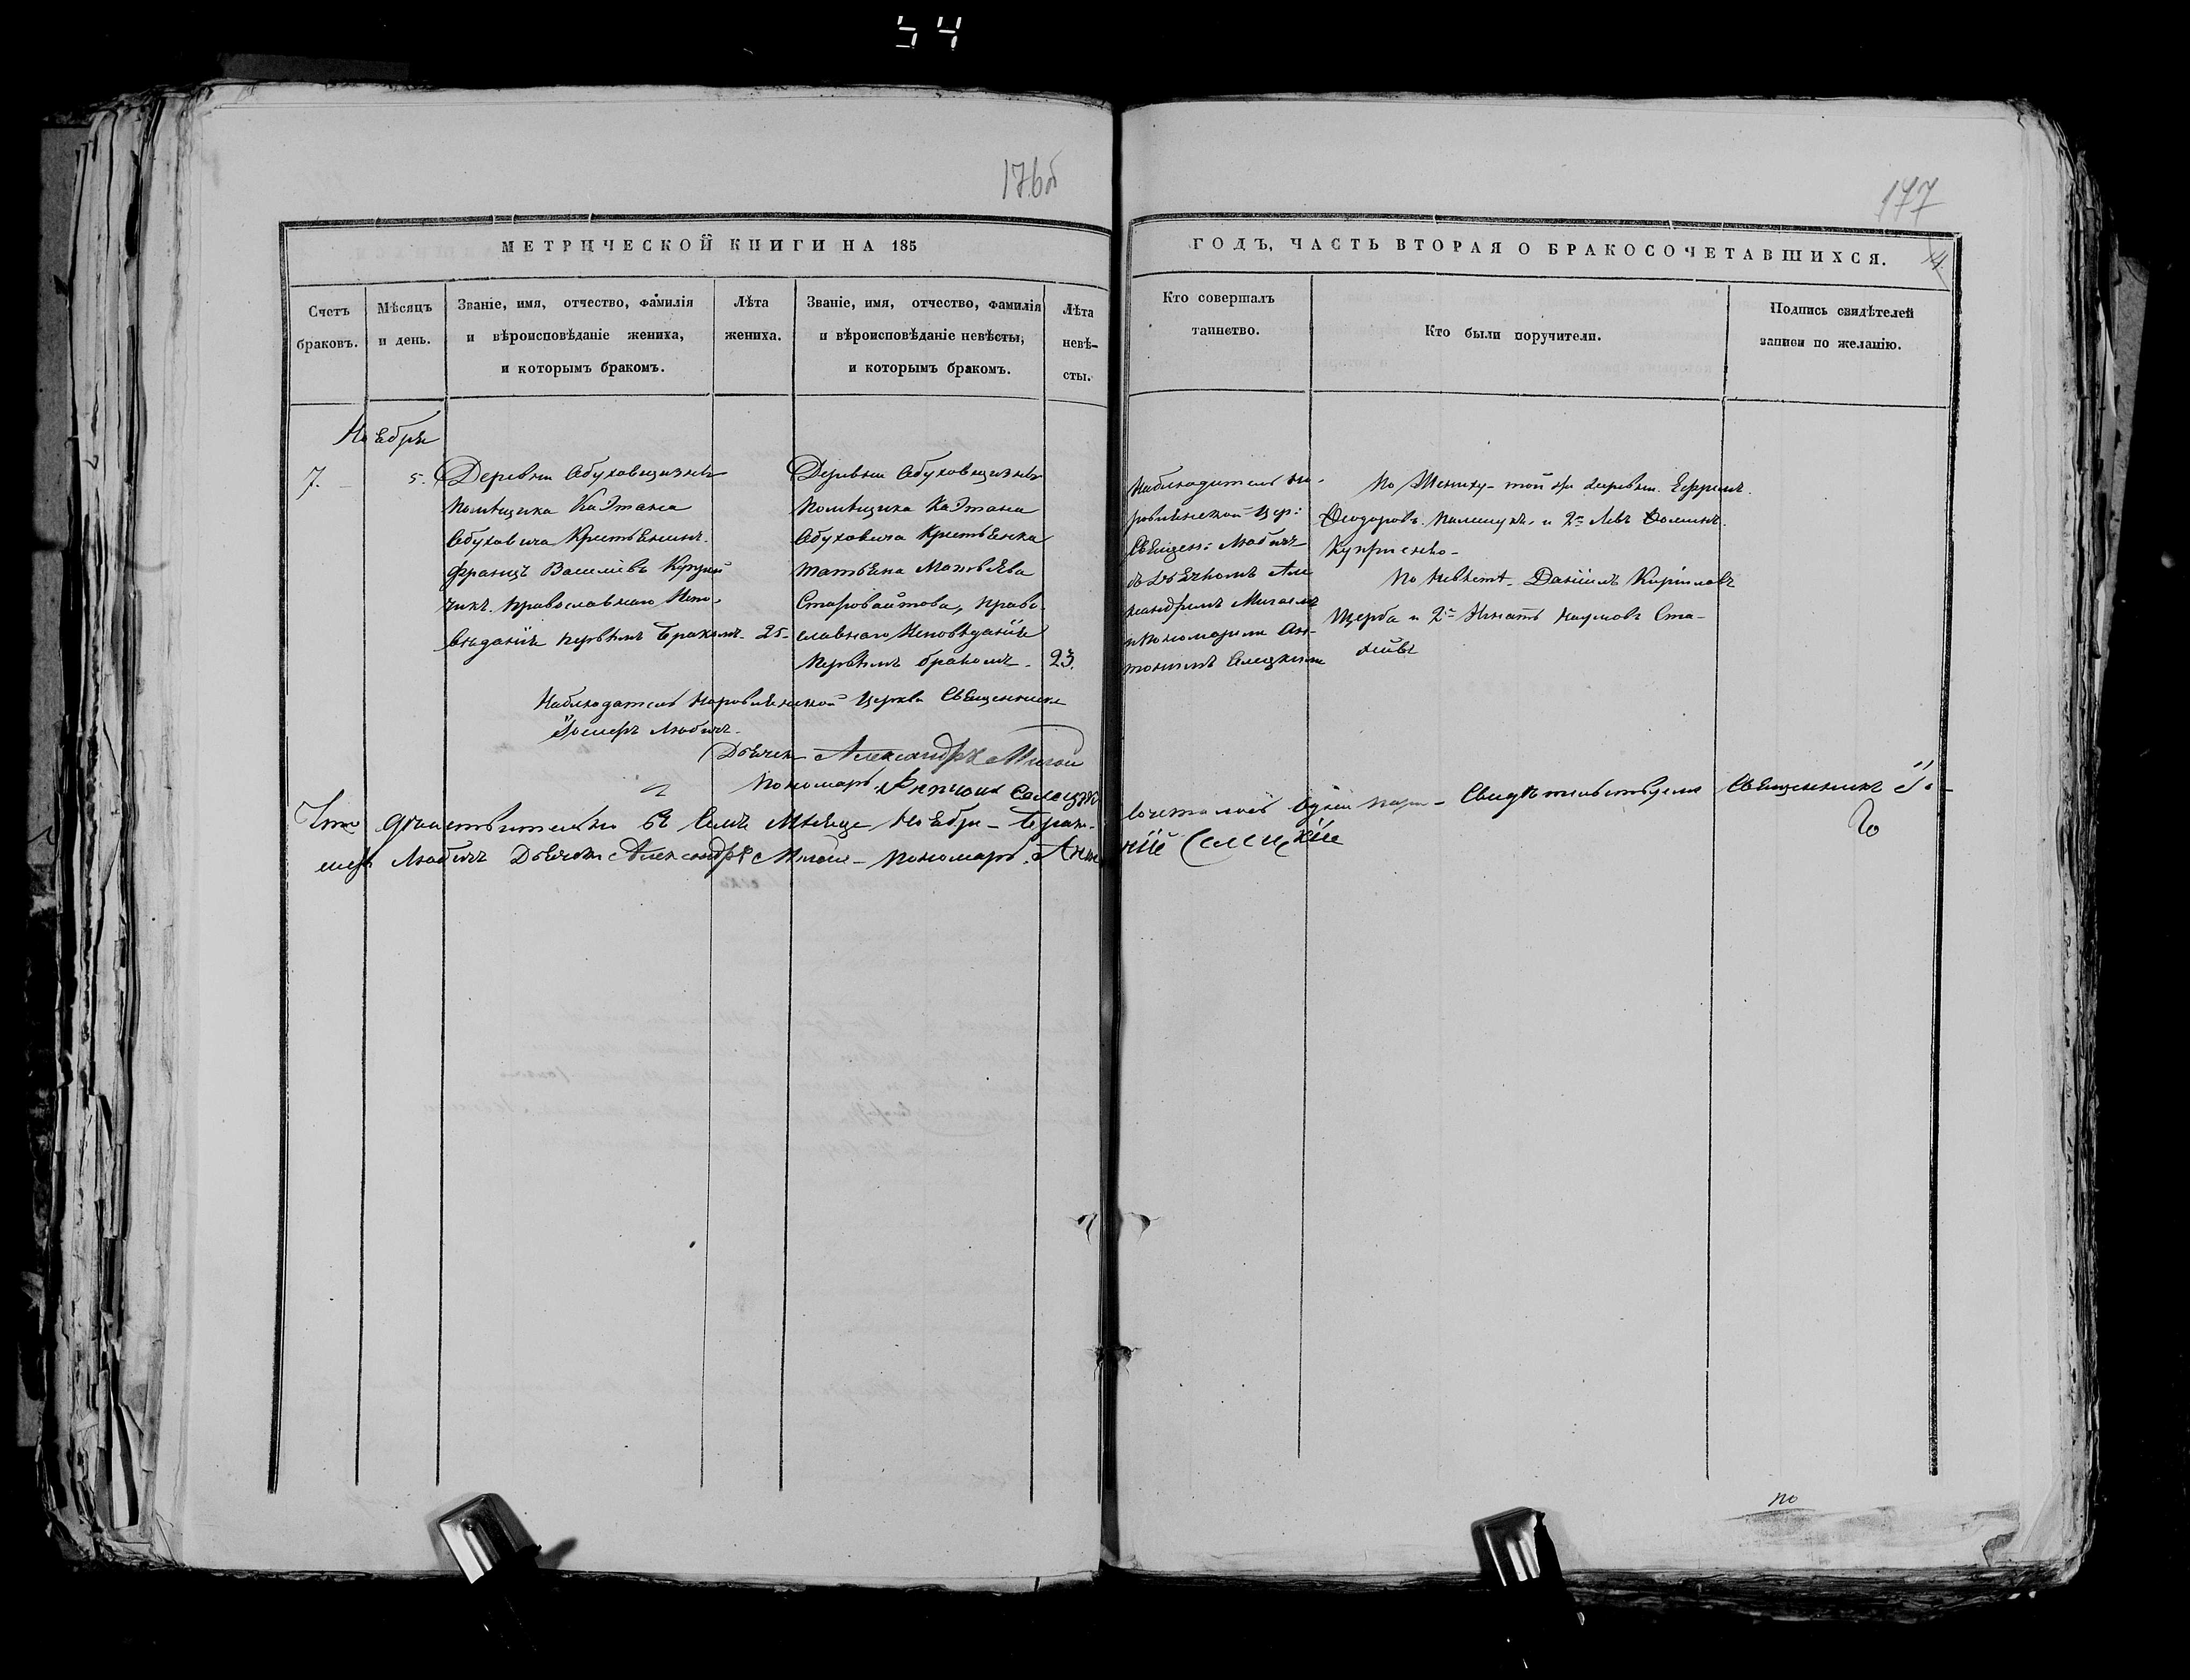 54
176об
177
МЕТРИЧЕСКОЙ КНИГИ НА 185
ГОДЪ, ЧАСТЬ ВТОРАЯ О БРАКОСОЧЕТАВШИХСЯ.
14.
Счетъ
браковъ.
Мѣсяцъ
и день.
Званіе, имя, отчество, фамилія
и вѣроисповѣданіе жениха,
и которымъ бракомъ.
Лѣта
жениха.
Званіе, имя, отчество, фамилія
и вѣроисповѣданіе невѣсты,
и которымъ бракомъ.
Лѣта
невѣ-
сты.
Кто совершалъ
таинство.
Кто были поручители.
Подпись свидѣтелей
записи по желанію.
Ноября
7.
5.
Деревни Обуховщизны
помѣщика Каэтана
Обуховича Крестьянинъ
Францъ Васильевъ
православнаго Испо-
вѣданія первымъ бракомъ
25
Деревни Обуховщизны
помѣщика Каэтана
Обуховича Крестьянка
Татьяна Матвѣева
Старовойтова, право-
славнаго Исповѣданія
первымъ бракомъ
23.
Наблюдатель На-
ровлянской Цер:
Священ: Любичъ
съ Дьячкомъ Але-
ксандромъ Мигаемъ
и пономаремъ Ан-
тониемъ Селицкимъ
По Жениху той же деревни Ефремъ
Ѳеодоровъ Палешукъ и 2й Левъ Ѳоминъ
Куприенко
По Невѣстѣ Даніилъ Кириловъ
Щерба и 2й Игнатъ Наумовъ Ста-
Наблюдатель Наровлянской Церкви Священникъ
Іосифъ Любичъ
Дьячекъ Александръ Мигай
Пономарь Антоній Селицкій
Что дѣйствительно въ семъ Мѣсяцѣ Ноябрѣ Брако-
сочеталось одна пара Свидѣтельствуемъ Священникъ Іо-
сифъ Любичъ Дьячокъ Александръ Мигай Пономарь Анто-
ній Селицкій
по